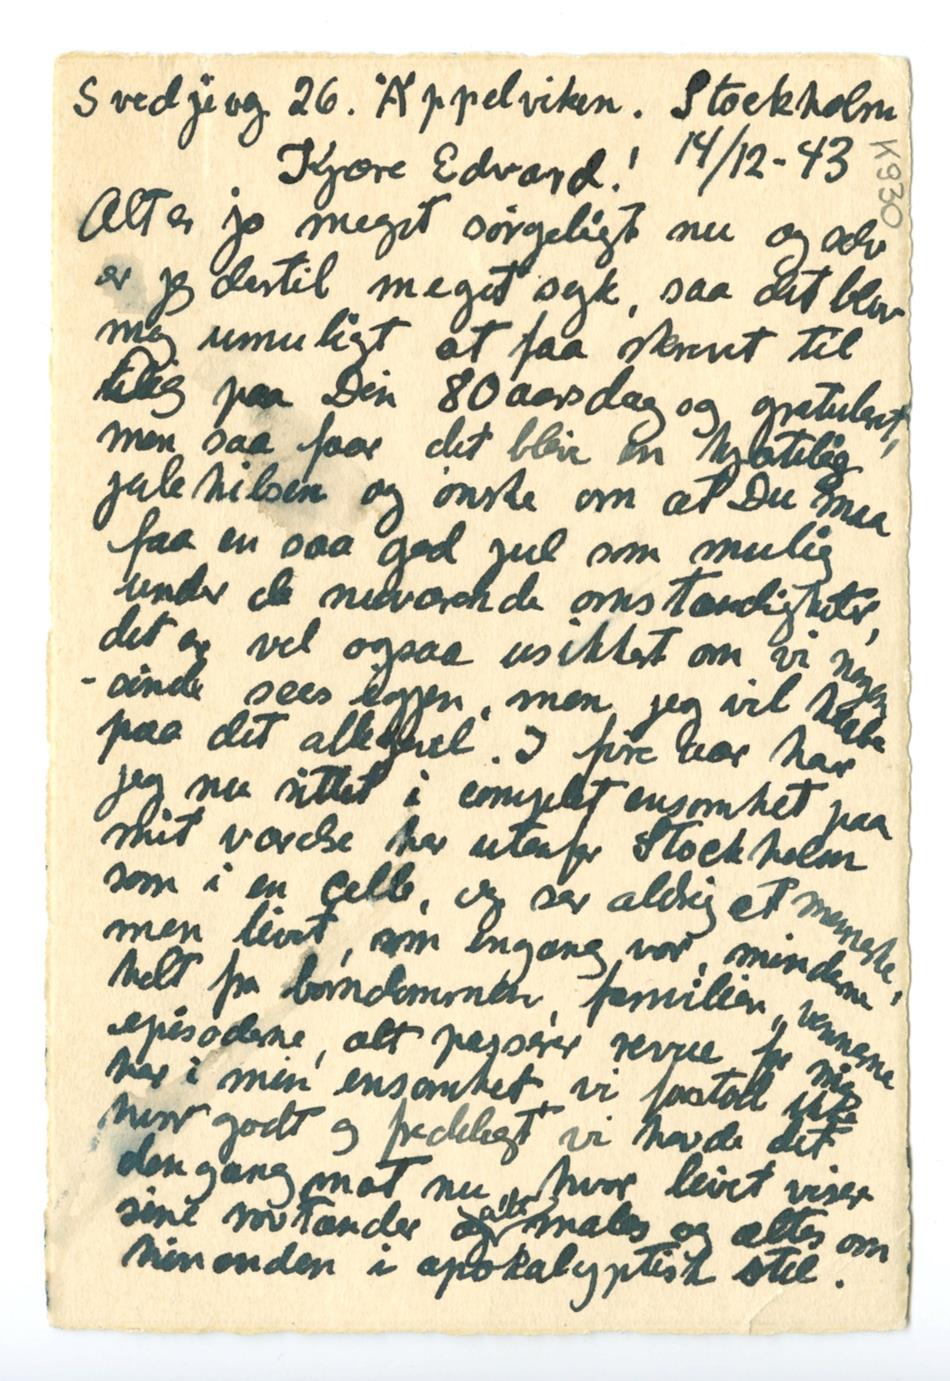 Svedjevg 26. Äppelviken. Stockholm
Kjære Edvard! 14/12-43
K930
Alt er jo meget sørgeligt nu og selv
er jeg dertil meget syk, saa det blev
mig umuligt at faa skrevet til
Dig paa Din 80 aarsdag og gratulert,
men saa faar det blive en hjertelig
julehilsen og ønske om at Du maa
faa en saa god jul som mulig
under de nuværende omstændigheter,
det er vel ogsaa usikkert om vi nogen
-sinde sees igjen, men jeg vil haabe
paa det allikevel. I fire aar har
jeg nu sittet i complet ensomhet paa
mit værelse her utenfor Stockholm
som i en celle, og ser aldrig et menneske,
men livet, som engang var, minderne
helt fra barndommen, familien, vennerne
episoderne, alt passerer revue for mig
her i min ensomhet, vi forstod ikke
hvor godt og fredeligt vi havde det
dengang mot nu, hvor livet viser
sine rovtænder males og ætes om
hinanden i apokalyptisk stil.